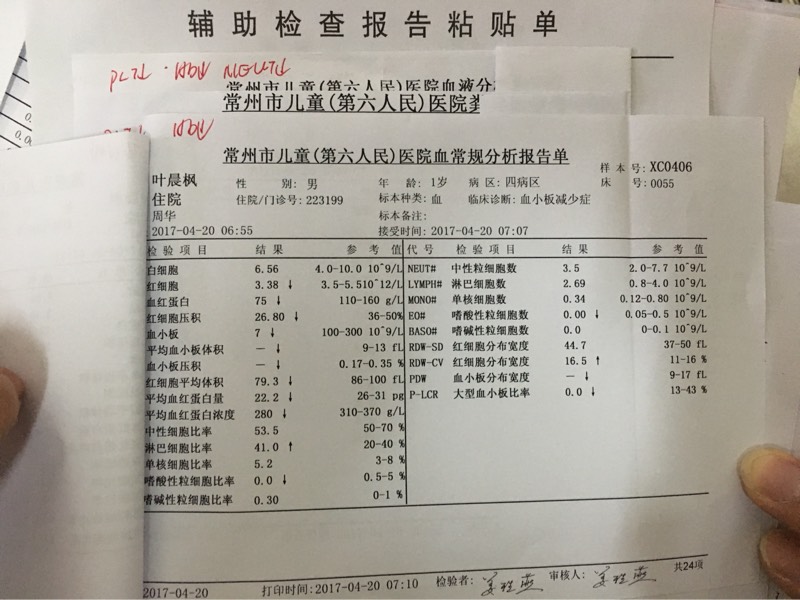 辅助检查报告粘贴单
PLT↓ · Hb↓ NEUT↓
常州市儿童(第六人民)医院血液分
常州市儿童(第六人民)医院
Hb↓
常州市儿童(第六人民)医院血常规分析报告单
样 本 号: XC0406
叶晨枫 性 别: 男 年 龄: 1岁 病 区: 四病区 床 号: 0055
住院 住院/门诊号: 223199 标本种类: 血 临床诊断: 血小板减少症
周华 标本备注:
2017-04-20 06:55 接受时间: 2017-04-20 07:07
检 验 项 目 结 果 参 考 值 代 号 检 验 项 目 结 果 参 考 值
白细胞 6.56 4.0-10.0 10^9/L NEUT# 中性粒细胞数 3.5 2.0-7.7 10^9/L
红细胞 3.38 ↓ 3.5-5.510^12/L LYMPH# 淋巴细胞数 2.69 0.8-4.0 10^9/L
血红蛋白 75 ↓ 110-160 g/L MONO# 单核细胞数 0.34 0.12-0.80 10^9/L
红细胞压积 26.80 ↓ 36-50% EO# 嗜酸性粒细胞数 0.00 ↓ 0.05-0.5 10^9/L
血小板 7 ↓ 100-300 10^9/L BASO# 嗜碱性粒细胞数 0.0 0-0.1 10^9/L
平均血小板体积 — ↓ 9-13 fL RDW-SD 红细胞分布宽度 44.7 37-50 fL
血小板压积 — ↓ 0.17-0.35 % RDW-CV 红细胞分布宽度 16.5 ↑ 11-16 %
红细胞平均体积 79.3 ↓ 86-100 fL PDW 血小板分布宽度 — ↓ 9-17 fL
平均血红蛋白量 22.2 ↓ 26-31 pg P-LCR 大型血小板比率 0.0 ↓ 13-43 %
平均血红蛋白浓度 280 ↓ 310-370 g/L
中性细胞比率 53.5 50-70 %
淋巴细胞比率 41.0 ↑ 20-40 %
单核细胞比率 5.2 3-8 %
嗜酸性粒细胞比率 0.0 ↓ 0.5-5 %
嗜碱性粒细胞比率 0.30 0-1 %
2017-04-20 打印时间:2017-04-20 07:10 检验者: 审核人: 共24项